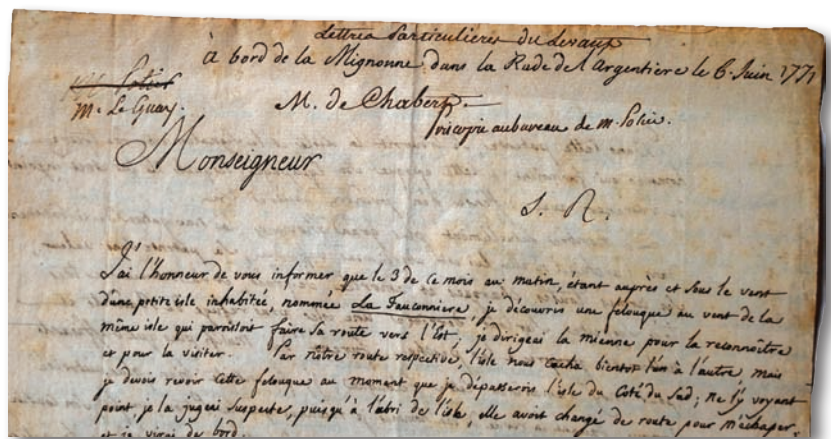 Lettres Particulieres du Levant
à bord de la Mignonne dans la Rade de l'argentiere le 6. Juin 1771
M. Polier
M. Le Guay.
M. de Chabert.
pris copie au bureau de m. Polier.
Monseigneur
S. R.
J'ai l'honneur de vous informer que le 3 de ce mois au matin, étant auprès et sous le vent
d'une petite isle inhabitée, nommée La Fauconniere, je découvris une felouque au vent de la
même isle qui parroissoit faire sa route vers l'Est, je dirigeai la mienne pour la reconnoître
et pour la visiter. Par nôtre route respective, l'isle nous cacha bientot l'un à l'autre mais
je devois revoir cette felouque au moment que je dépasserois l'isle du Coté du Sud; ne l'y voyant
point je la jugeai suspecte, puisqu'à l'abri de l'isle, elle avoit changé de route pour m'echaper,
et je virai de bord